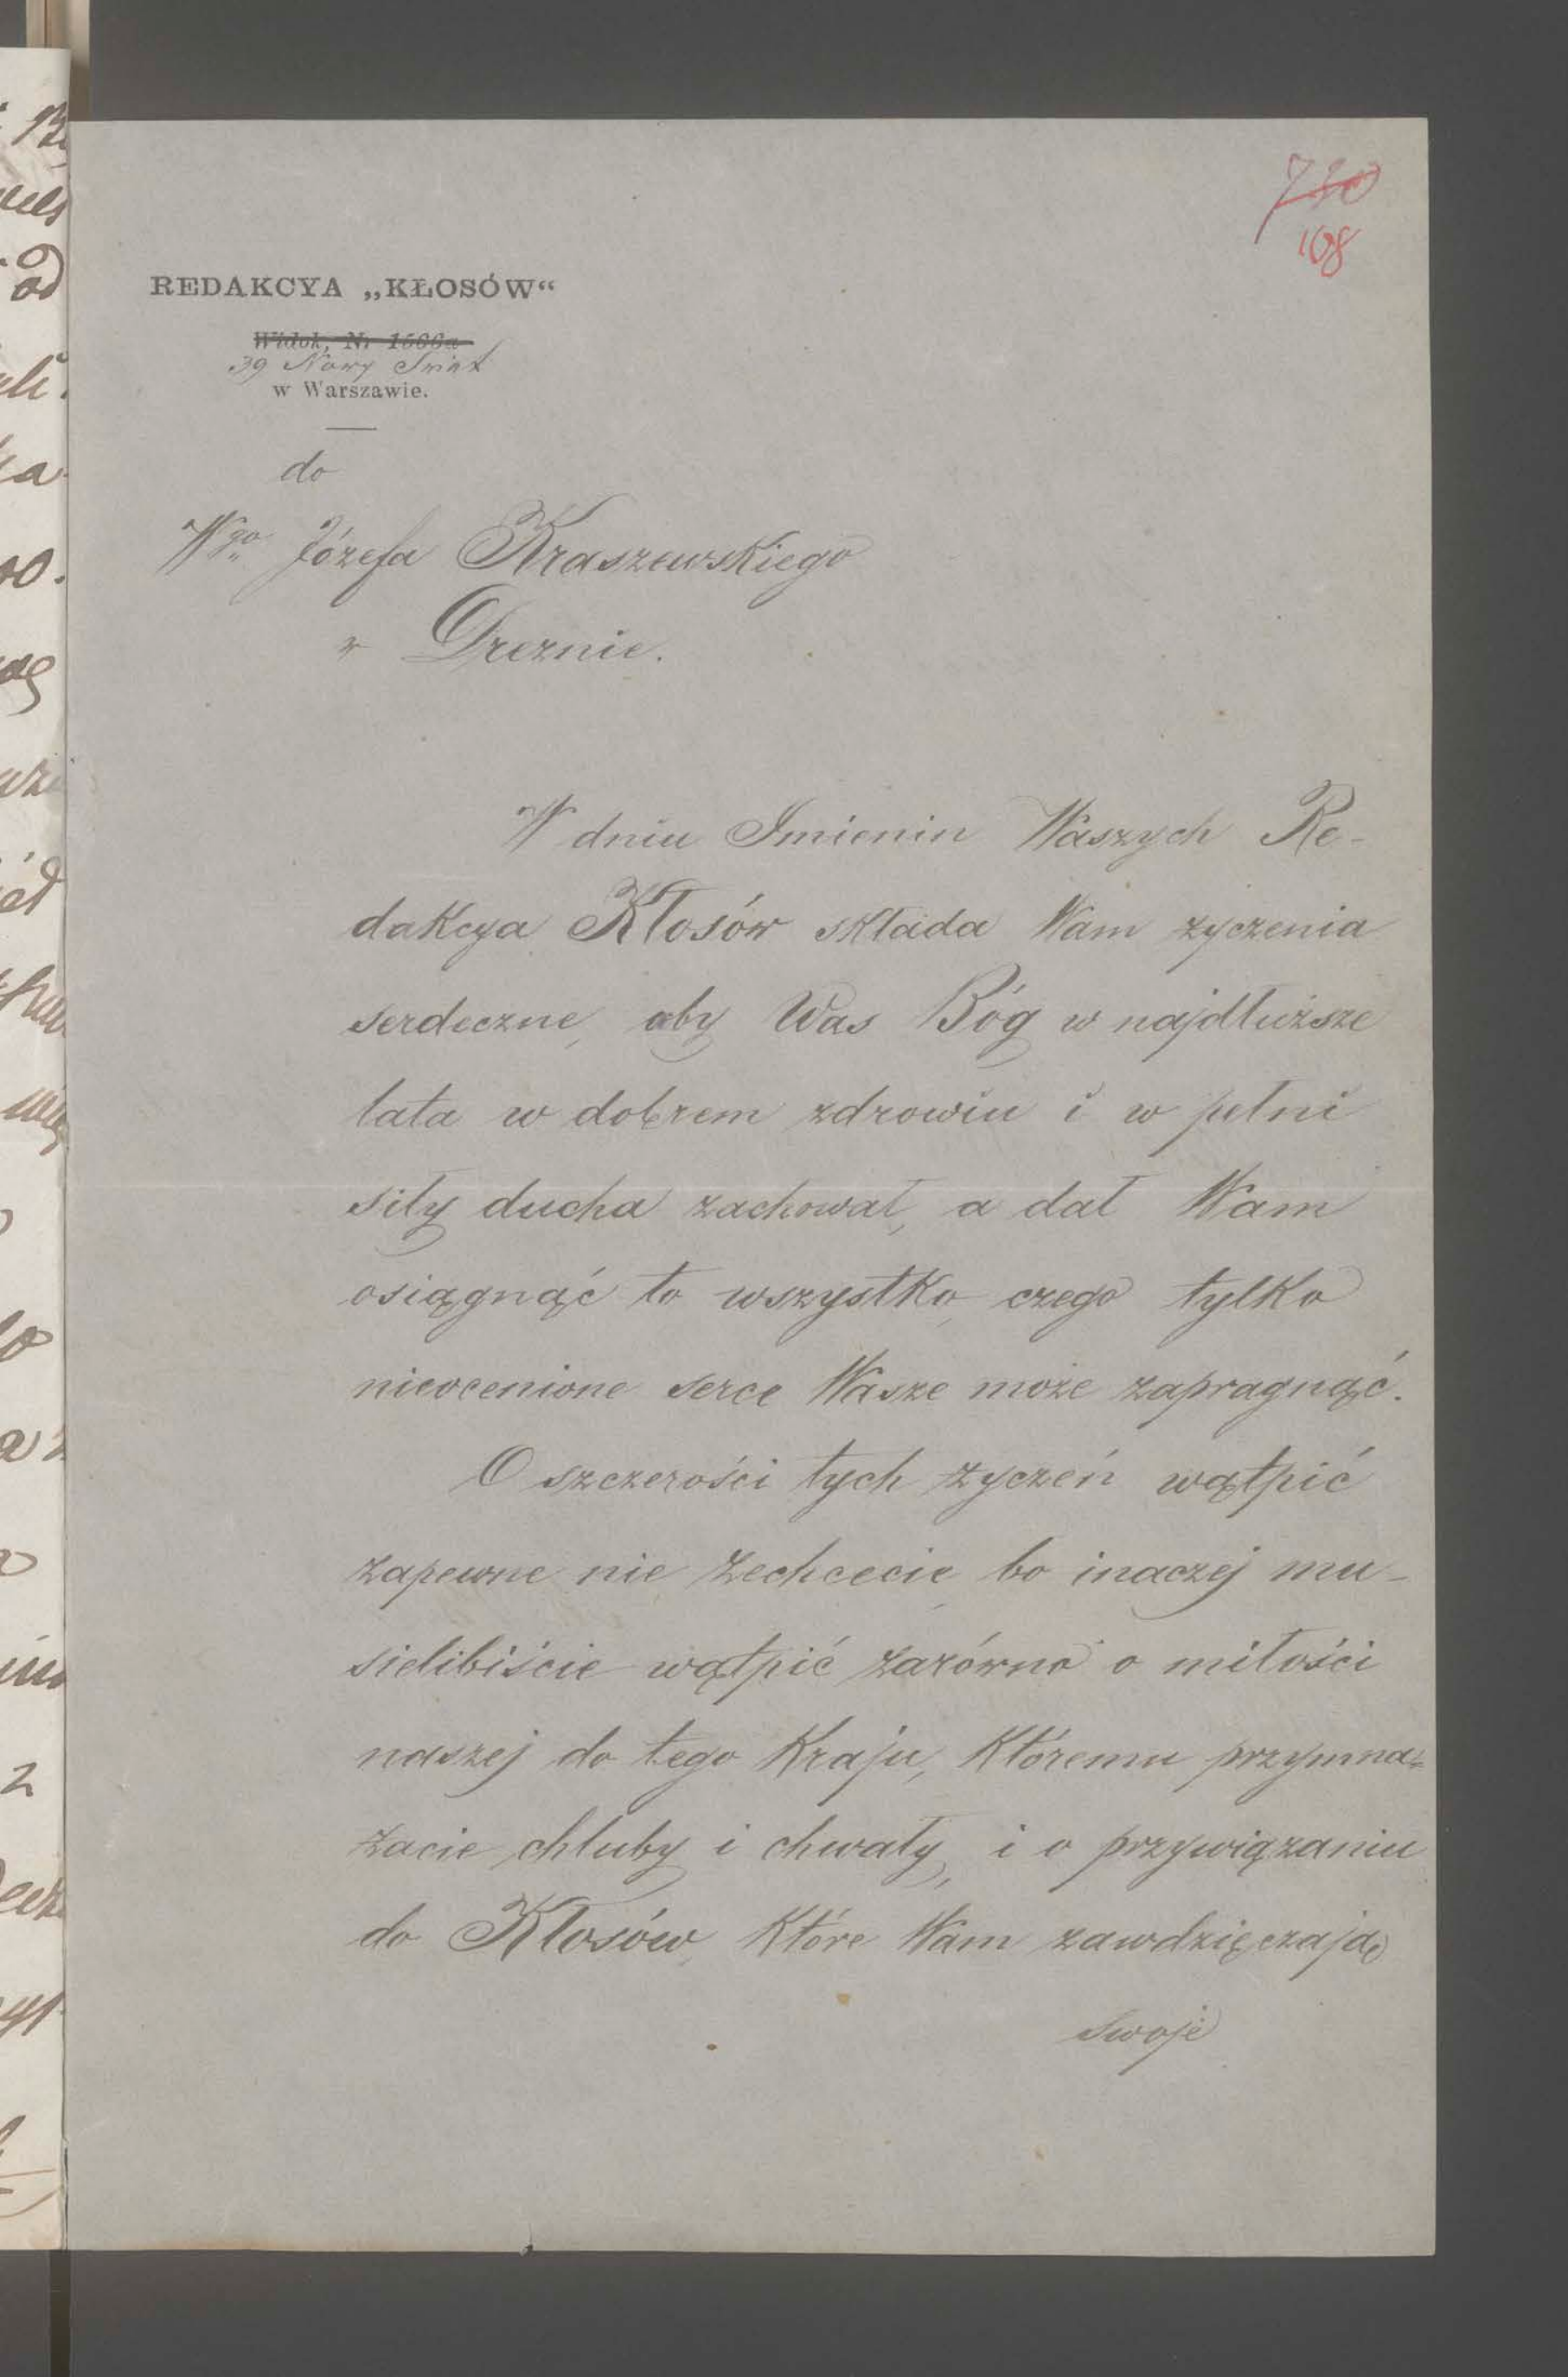 730
108
REDAKCYA „KŁOSÓW“
Widok, Nr 1566a
39 Nowy Świat
w Warszawie.
do
Wgo Józefa Kraszewskiego
w Dreznie.
W dniu Imienin Waszych Re-
dakcya Kłosów składa Wam życzenia
serdeczne, aby Was Bóg w najdłuższe
lata w dobrem zdrowiu i w pełni
siły ducha zachował, a dał Wam
osiągnąć to wszystko, czego tylko
nieocenione serce Wasze może zapragnąć.
O szczerości tych życzeń wątpić
zapewne nie zechcecie, bo inaczej mu-
sielibiście wątpić zarówno o miłości
naszej do tego Kraju, Któremu przymna-
żacie chluby i chwały, i o przywiązaniu
do Kłosów, Które Wam zawdzięczają
swoje